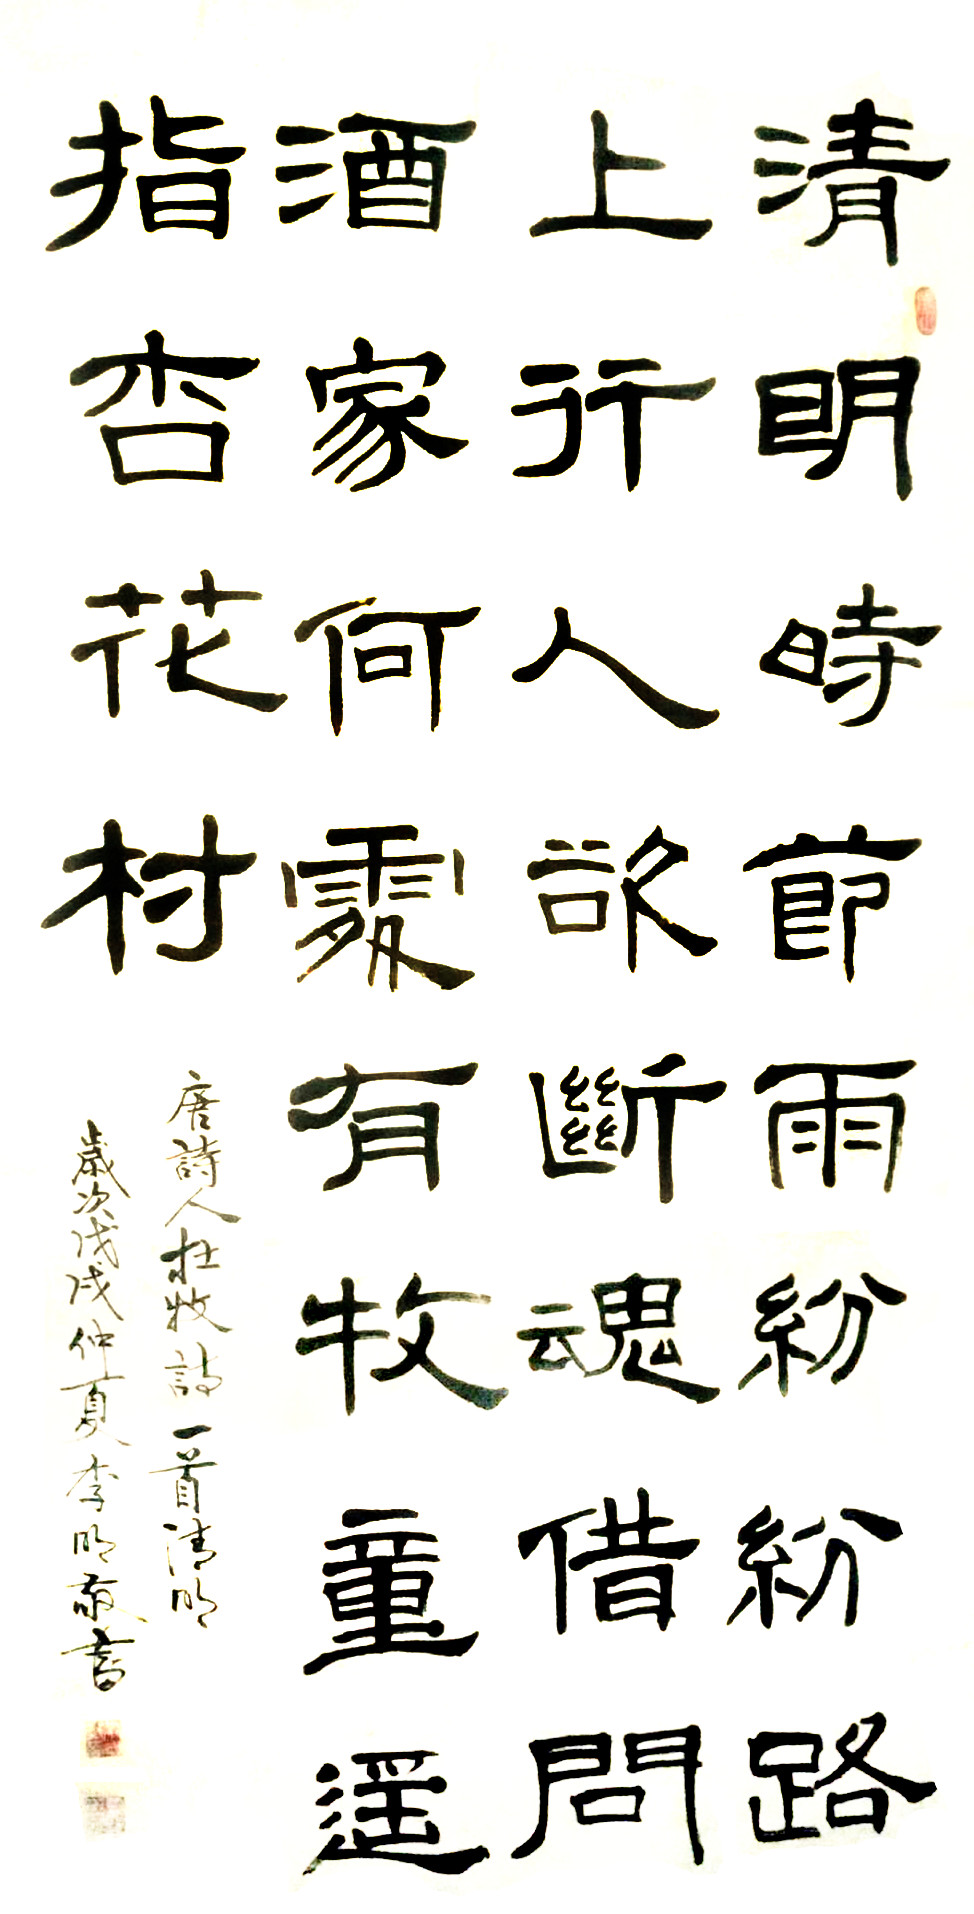 清明時節雨紛紛路
上行人欲斷魂借問
酒家何處有牧童遙
指杏花村
唐詩人杜牧詩一首清明
歲次戊戌仲夏李明敬書